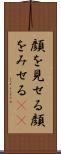 顔を見せる顔
をみせる